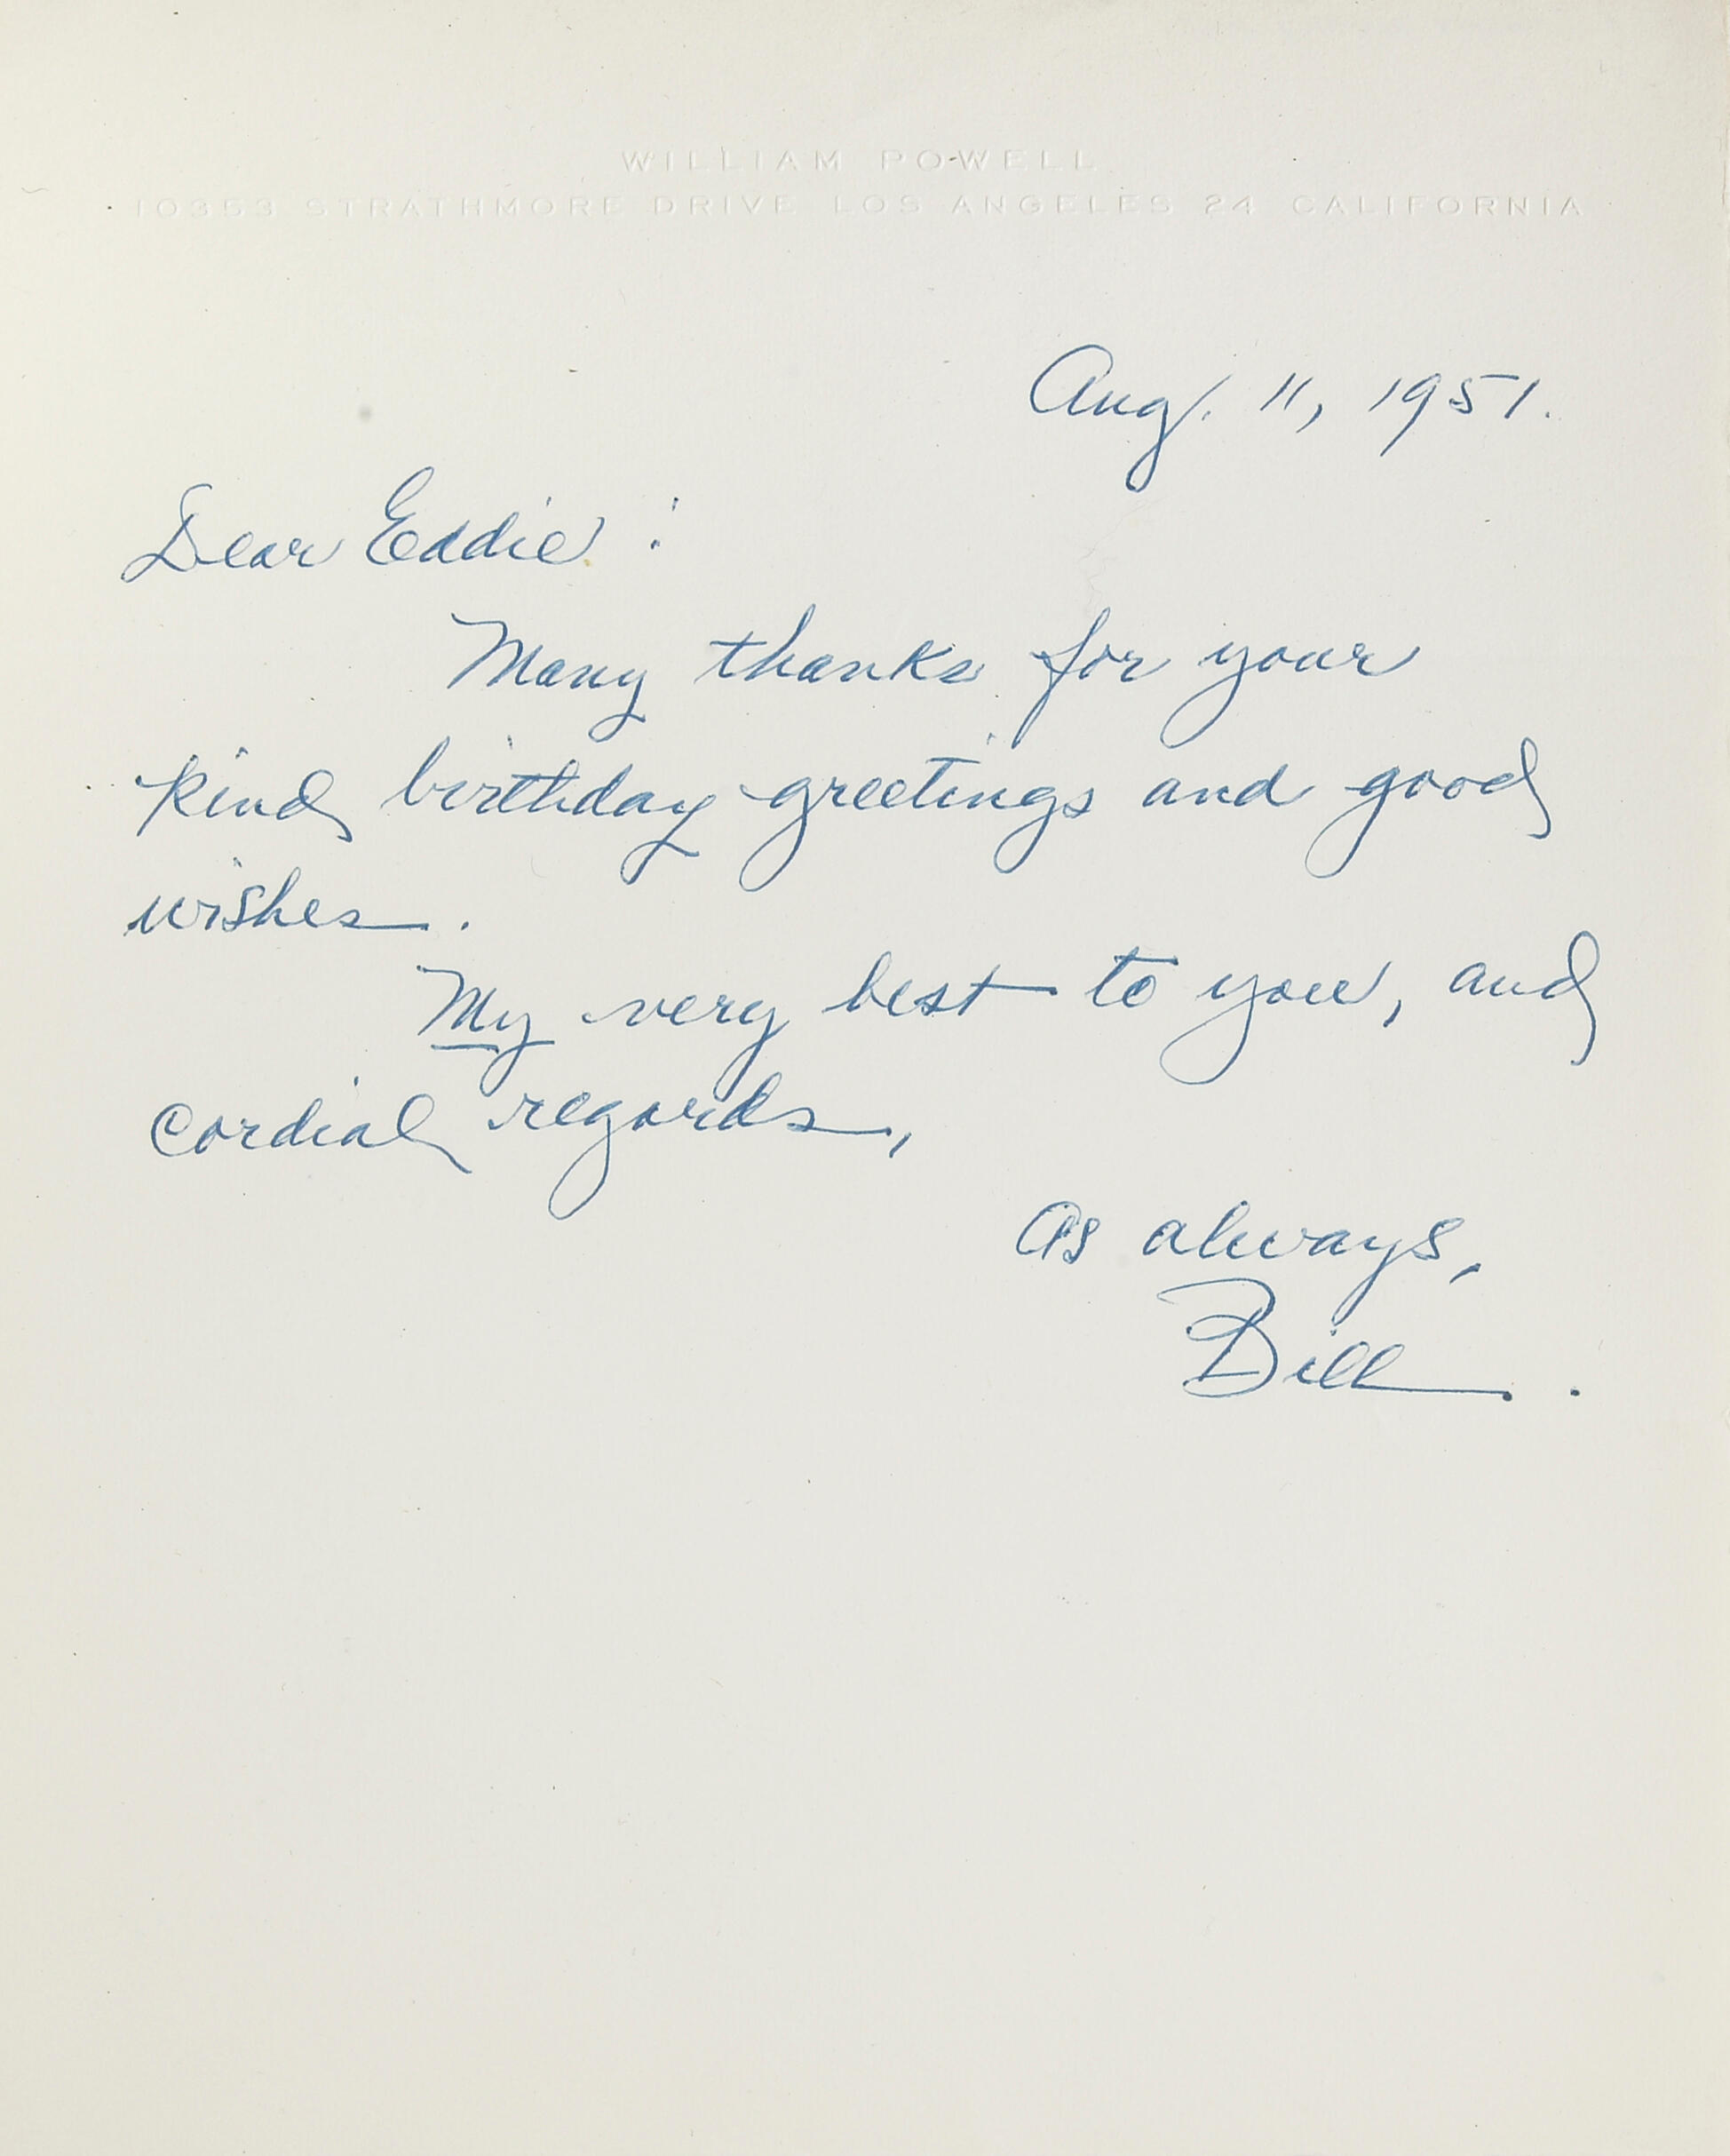 WILLIAM POWELL
10353 STRATHMORE DRIVE LOS ANGELES 24 CALIFORNIA
Aug. 11, 1951.
Dear Eddie:
Many thanks for your
kind birthday greetings and good
wishes.
My very best to you, and
cordial regards,
As always,
Bill.